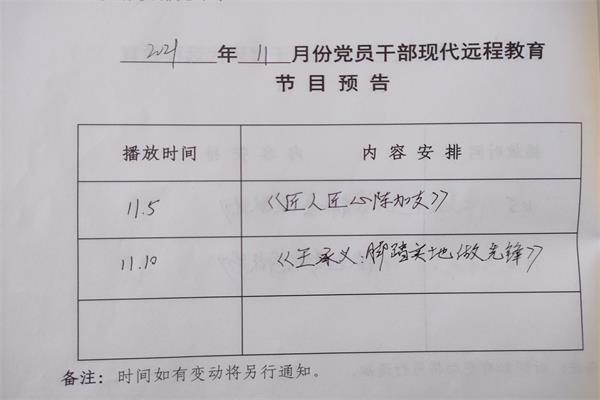 2021 年 11 月份党员干部现代远程教育
节目预告
播放时间 内容安排
11.5 《匠人匠心陈加支》
11.10 《王承义:脚踏实地做先锋》
备注：时间如有变动将另行通知。